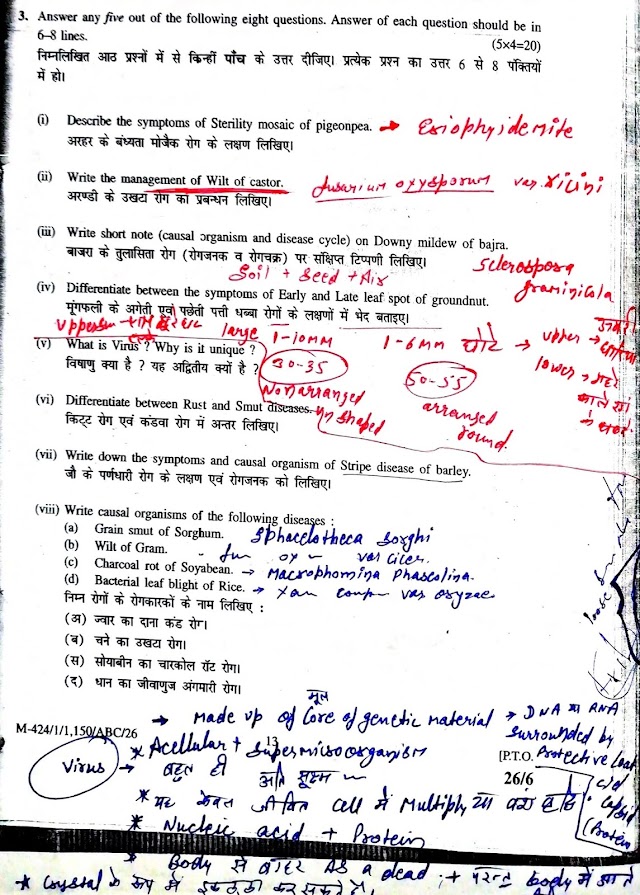 3. Answer any five out of the following eight questions. Answer of each question should be in
6–8 lines.
(5×4=20)
निम्नलिखित आठ प्रश्नों में से किन्हीं पाँच के उत्तर दीजिए। प्रत्येक प्रश्न का उत्तर 6 से 8 पंक्तियों
में हो।
(i) Describe the symptoms of Sterility mosaic of pigeonpea. → Eriophyidemite
अरहर के बंध्यता मोजैक रोग के लक्षण लिखिए।
(ii) Write the management of Wilt of castor. fusarium oxysporum var. ricini
अरण्डी के उखटा रोग का प्रबन्धन लिखिए।
(iii) Write short note (causal organism and disease cycle) on Downy mildew of bajra.
बाजरा के तुलासिता रोग (रोगजनक व रोगचक्र) पर संक्षिप्त टिप्पणी लिखिए। Sclerospora
Soil + Seed + Air graminicola
(iv) Differentiate between the symptoms of Early and Late leaf spot of groundnut.
मूंगफली के अगेती एवं पछेती पत्ती धब्बा रोगों के लक्षणों में भेद बताइए।
large 1-10MM 1-6MM छोटे → upper →
(v) What is Virus ? Why is it unique ? 30-35 50-55 lower → गहरे
विषाणु क्या है ? यह अद्वितीय क्यों है ?
Nonarranged arranged
(vi) Differentiate between Rust and Smut diseases. un shaped round.
किट्ट रोग एवं कंडवा रोग में अन्तर लिखिए।
(vii) Write down the symptoms and causal organism of Stripe disease of barley.
जौ के पर्णधारी रोग के लक्षण एवं रोगजनक को लिखिए।
(viii) Write causal organisms of the following diseases :
(a) Grain smut of Sorghum. Sphacelotheca sorghi
(b) Wilt of Gram. - fu ox var cicer.
(c) Charcoal rot of Soyabean. → Macrophomina Phaseolina.
(d) Bacterial leaf blight of Rice. → Xan comp var oryzae
निम्न रोगों के रोगकारकों के नाम लिखिए :
(अ) ज्वार का दाना कंड रोग।
(ब) चने का उखटा रोग।
(स) सोयाबीन का चारकोल रॉट रोग।
(द) धान का जीवाणुज अंगमारी रोग।
loose
मूल
→ Made up of Core of genetic material → DNA या RNA
M-424/1/1,150/ABC/26 13 Surrounded by
* Acellular + Supermicroorganism [P.T.O. Protective Coat
Virus → बहुत ही अति सूक्ष्म 26/6
* यह केवल जीवित cell में Multiply Capsid
* Nucleic acid + Protein (Protein
* Body से बाहर As a dead ; + परन्तु body में आते
* Crystal के रूप में इकट्ठा कर सकते हैं।